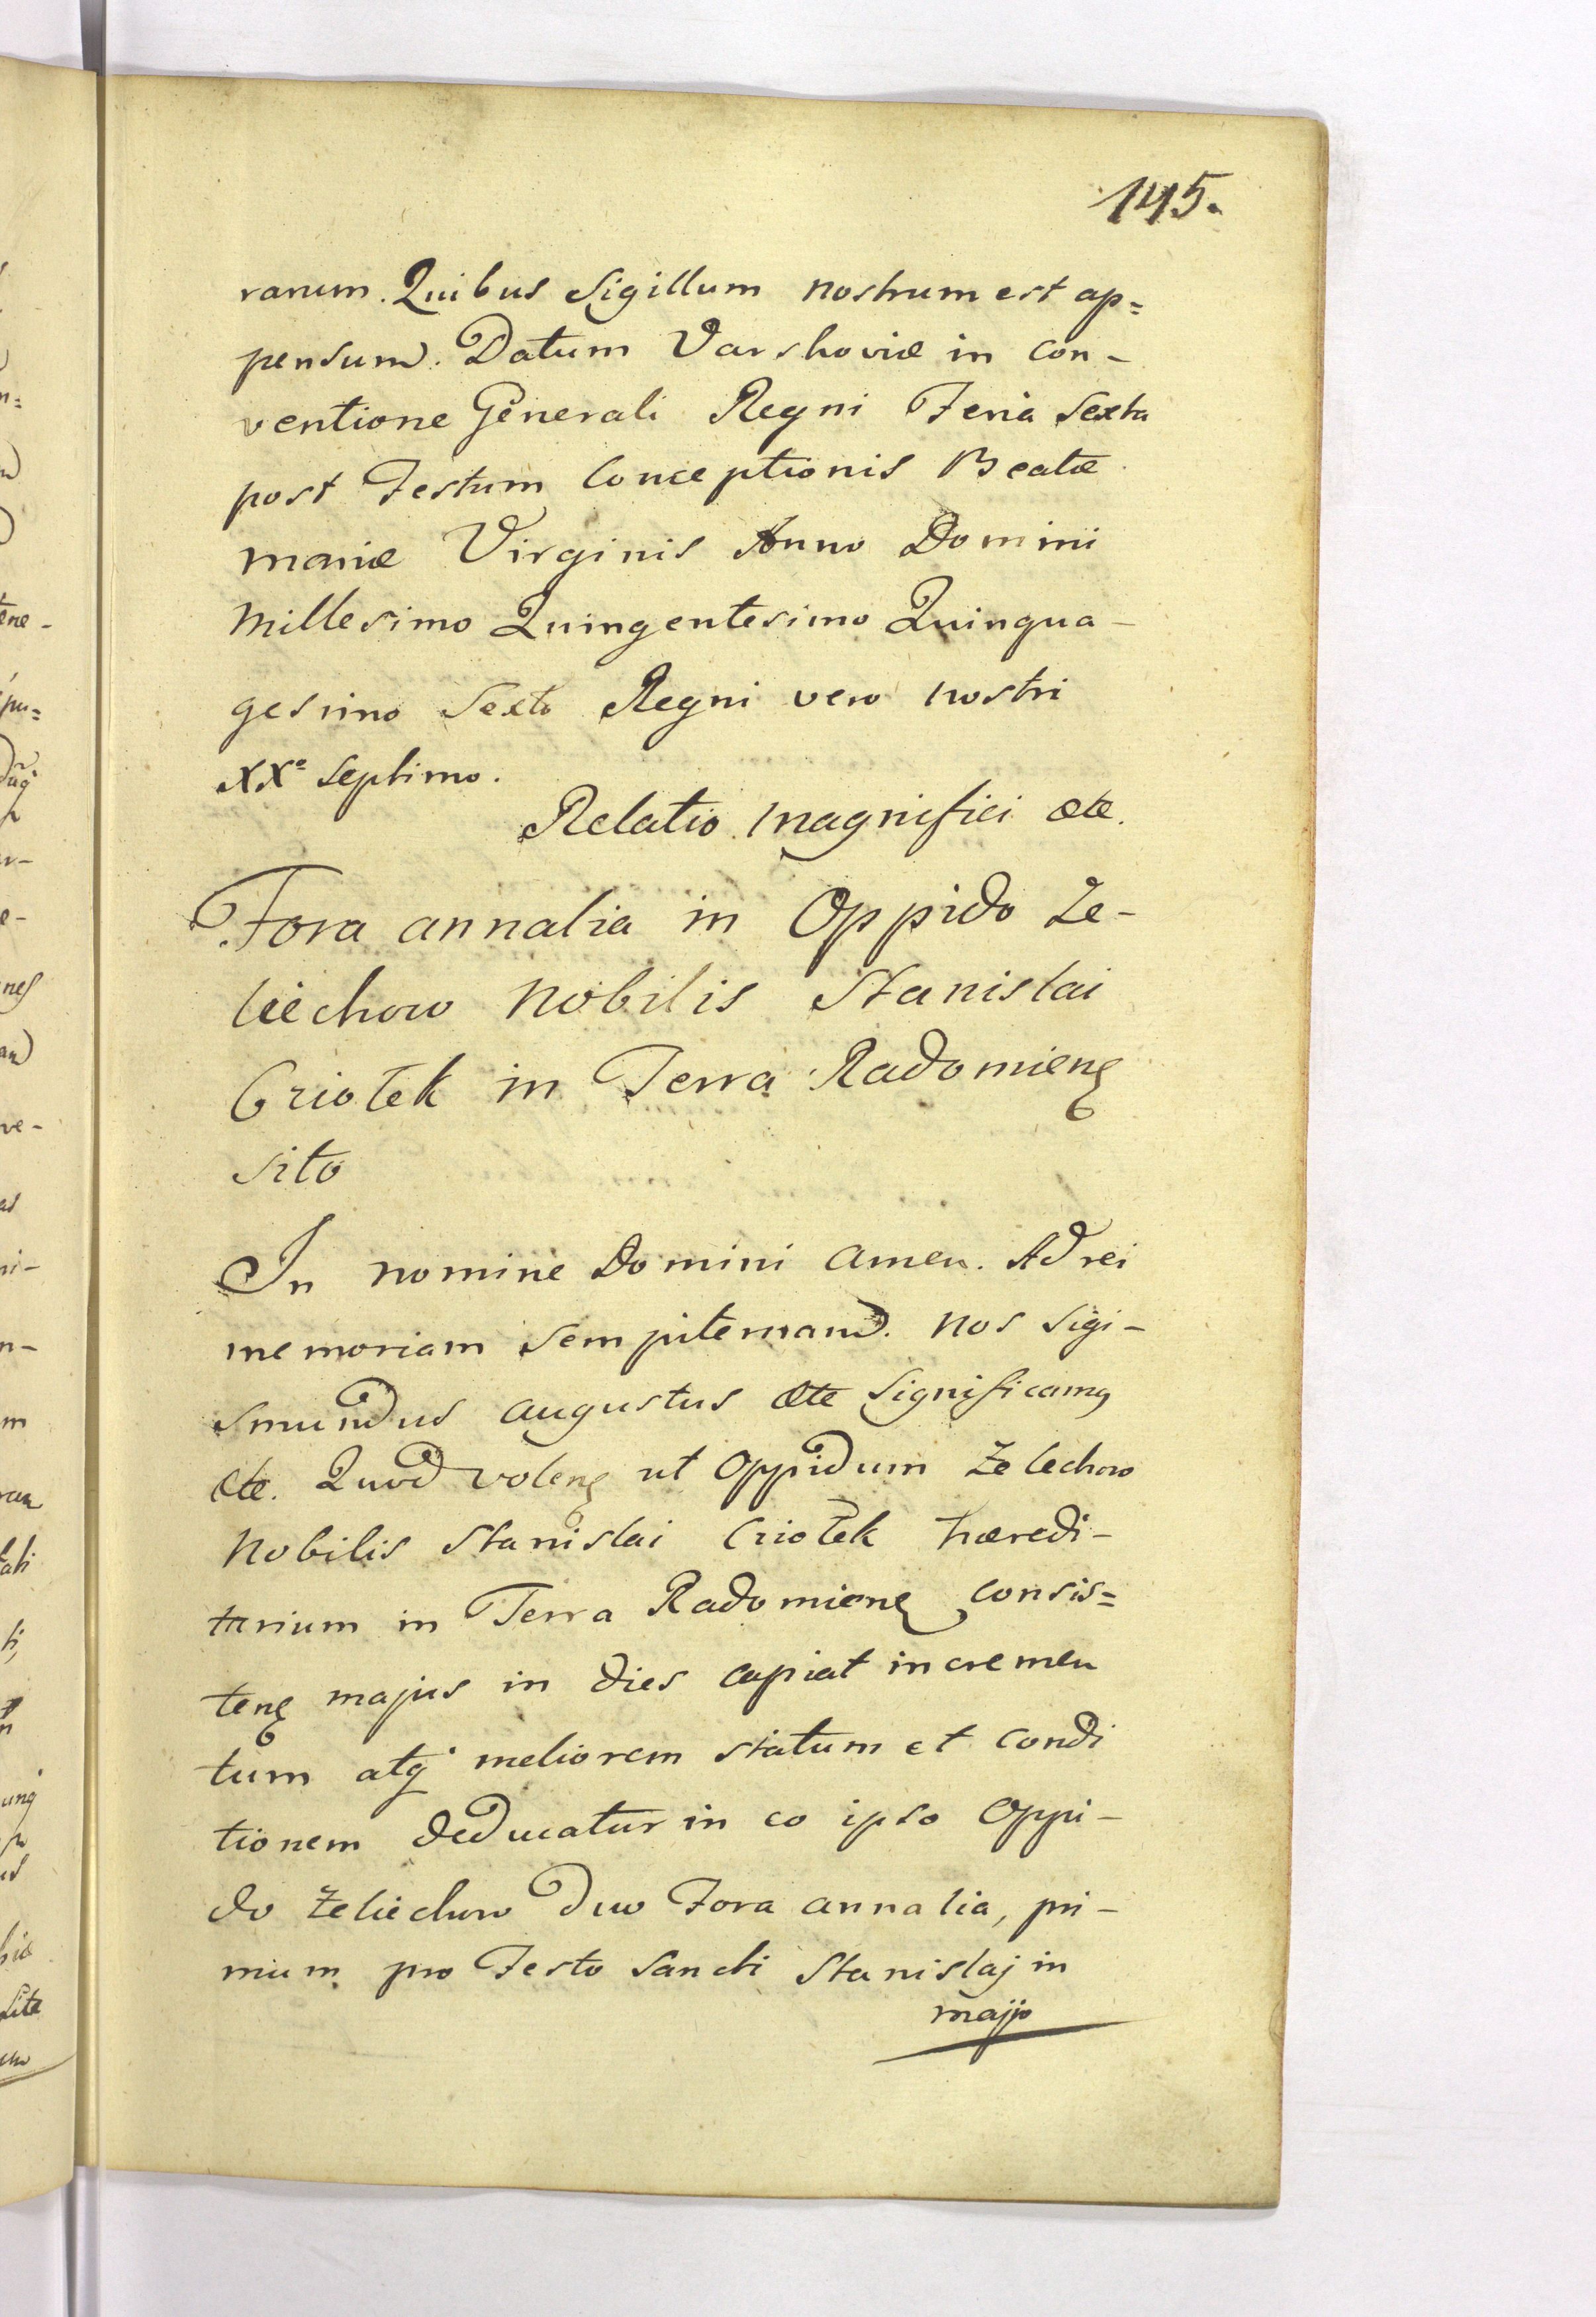 145.
rarum. Quibus Sigillum nostrum est ap=
pensum. Datum Varshoviæ in con-
ventione Generali Regni Feria Sexta
post Festum Conceptionis Beatæ
Mariæ Virginis Anno Domini
Millesimo Quingentesimo Quinqua-
gesimo Sexto Regni vero nostri
XXº Septimo.
Relatio Magnifici etc.
Fora annalia in Oppido Ze-
liechow Nobilis Stanislai
Criotek in Terra Radomieng
sito
In nomine Domini Amen. Ad rei
memoriam sempiternam. Nos Sigi-
smundus Augustus etc Significamg
etc. Quod voleng ut Oppidum Zelechow
Nobilis Stanislai Criotek hæredi-
tarium in Terra Radomieng consis=
teng majus in dies capiat incremen
tum atq meliorem statum et condi
tionem deducatur in eo ipso Oppi-
do Zeliechow duo Fora annalia, pri-
mum pro Festo Sancti Stanislaj in
majjo